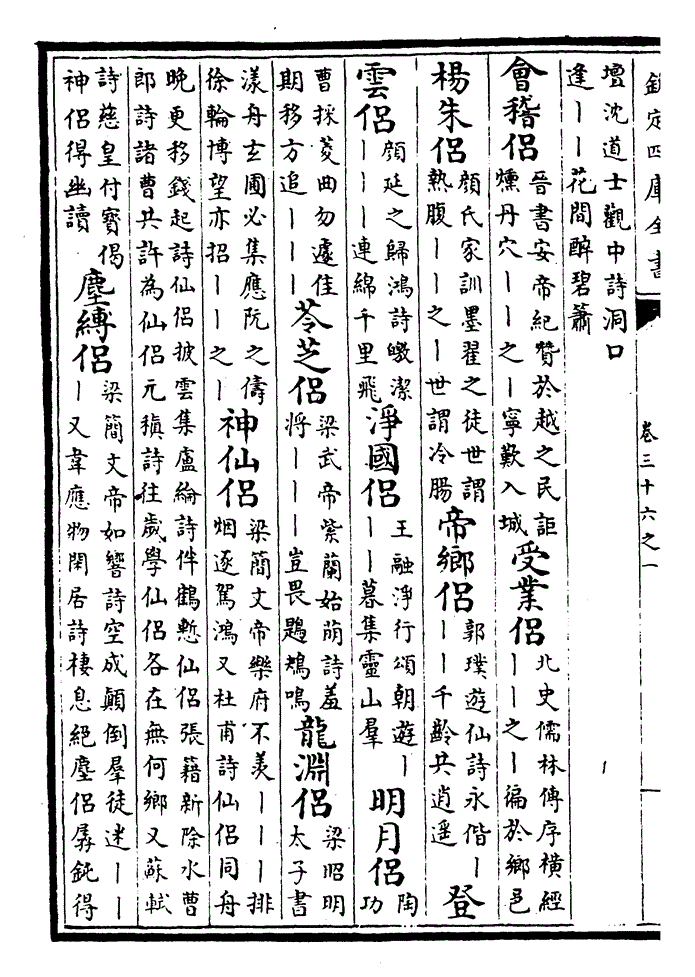 欽定四庫全書
卷三十六之一
壇沈道士觀中詩洞口
逢丨丨花間醉碧簫
會稽侶 晉書安帝紀贊於越之民詎
燻丹穴丨丨之丨寧歎入城 受業侶 北史儒林傳序橫經
丨丨之丨徧於鄉邑
楊朱侶 顔氏家訓墨翟之徒世謂
熱腹丨丨之丨世謂冷腸 帝鄉侶 郭璞遊仙詩永偕丨
丨丨千齡共逍遥 登
雲侶 顔延之歸鴻詩皦潔
丨丨丨連綿千里飛 淨國侶 王融淨行頌朝遊丨
丨丨暮集靈山羣 明月侶 陶
功
曹採菱曲勿遽佳
期移方追丨丨丨 苓芝侶 梁武帝紫蘭始萌詩羞
將丨丨丨豈畏鶗鴂鳴 龍淵侶 梁昭明
太子書
漾舟玄圃必集應阮之儔
徐輪博望亦招丨丨之丨 神仙侶 梁簡文帝樂府不羡丨丨丨排
烟逐駕鴻又杜甫詩仙侶同舟
晚更移錢起詩仙侶披雲集盧綸詩伴鶴慙仙侶張籍新除水曹
郎詩諸曹共許為仙侶元稹詩往歲學仙侶各在無何鄉又蘇軾
詩慈皇付寶偈
神侶得幽讀 塵縛侶 梁簡文帝如響詩空成顛倒羣徒迷丨丨
丨又韋應物閑居詩棲息絕塵侶孱鈍得